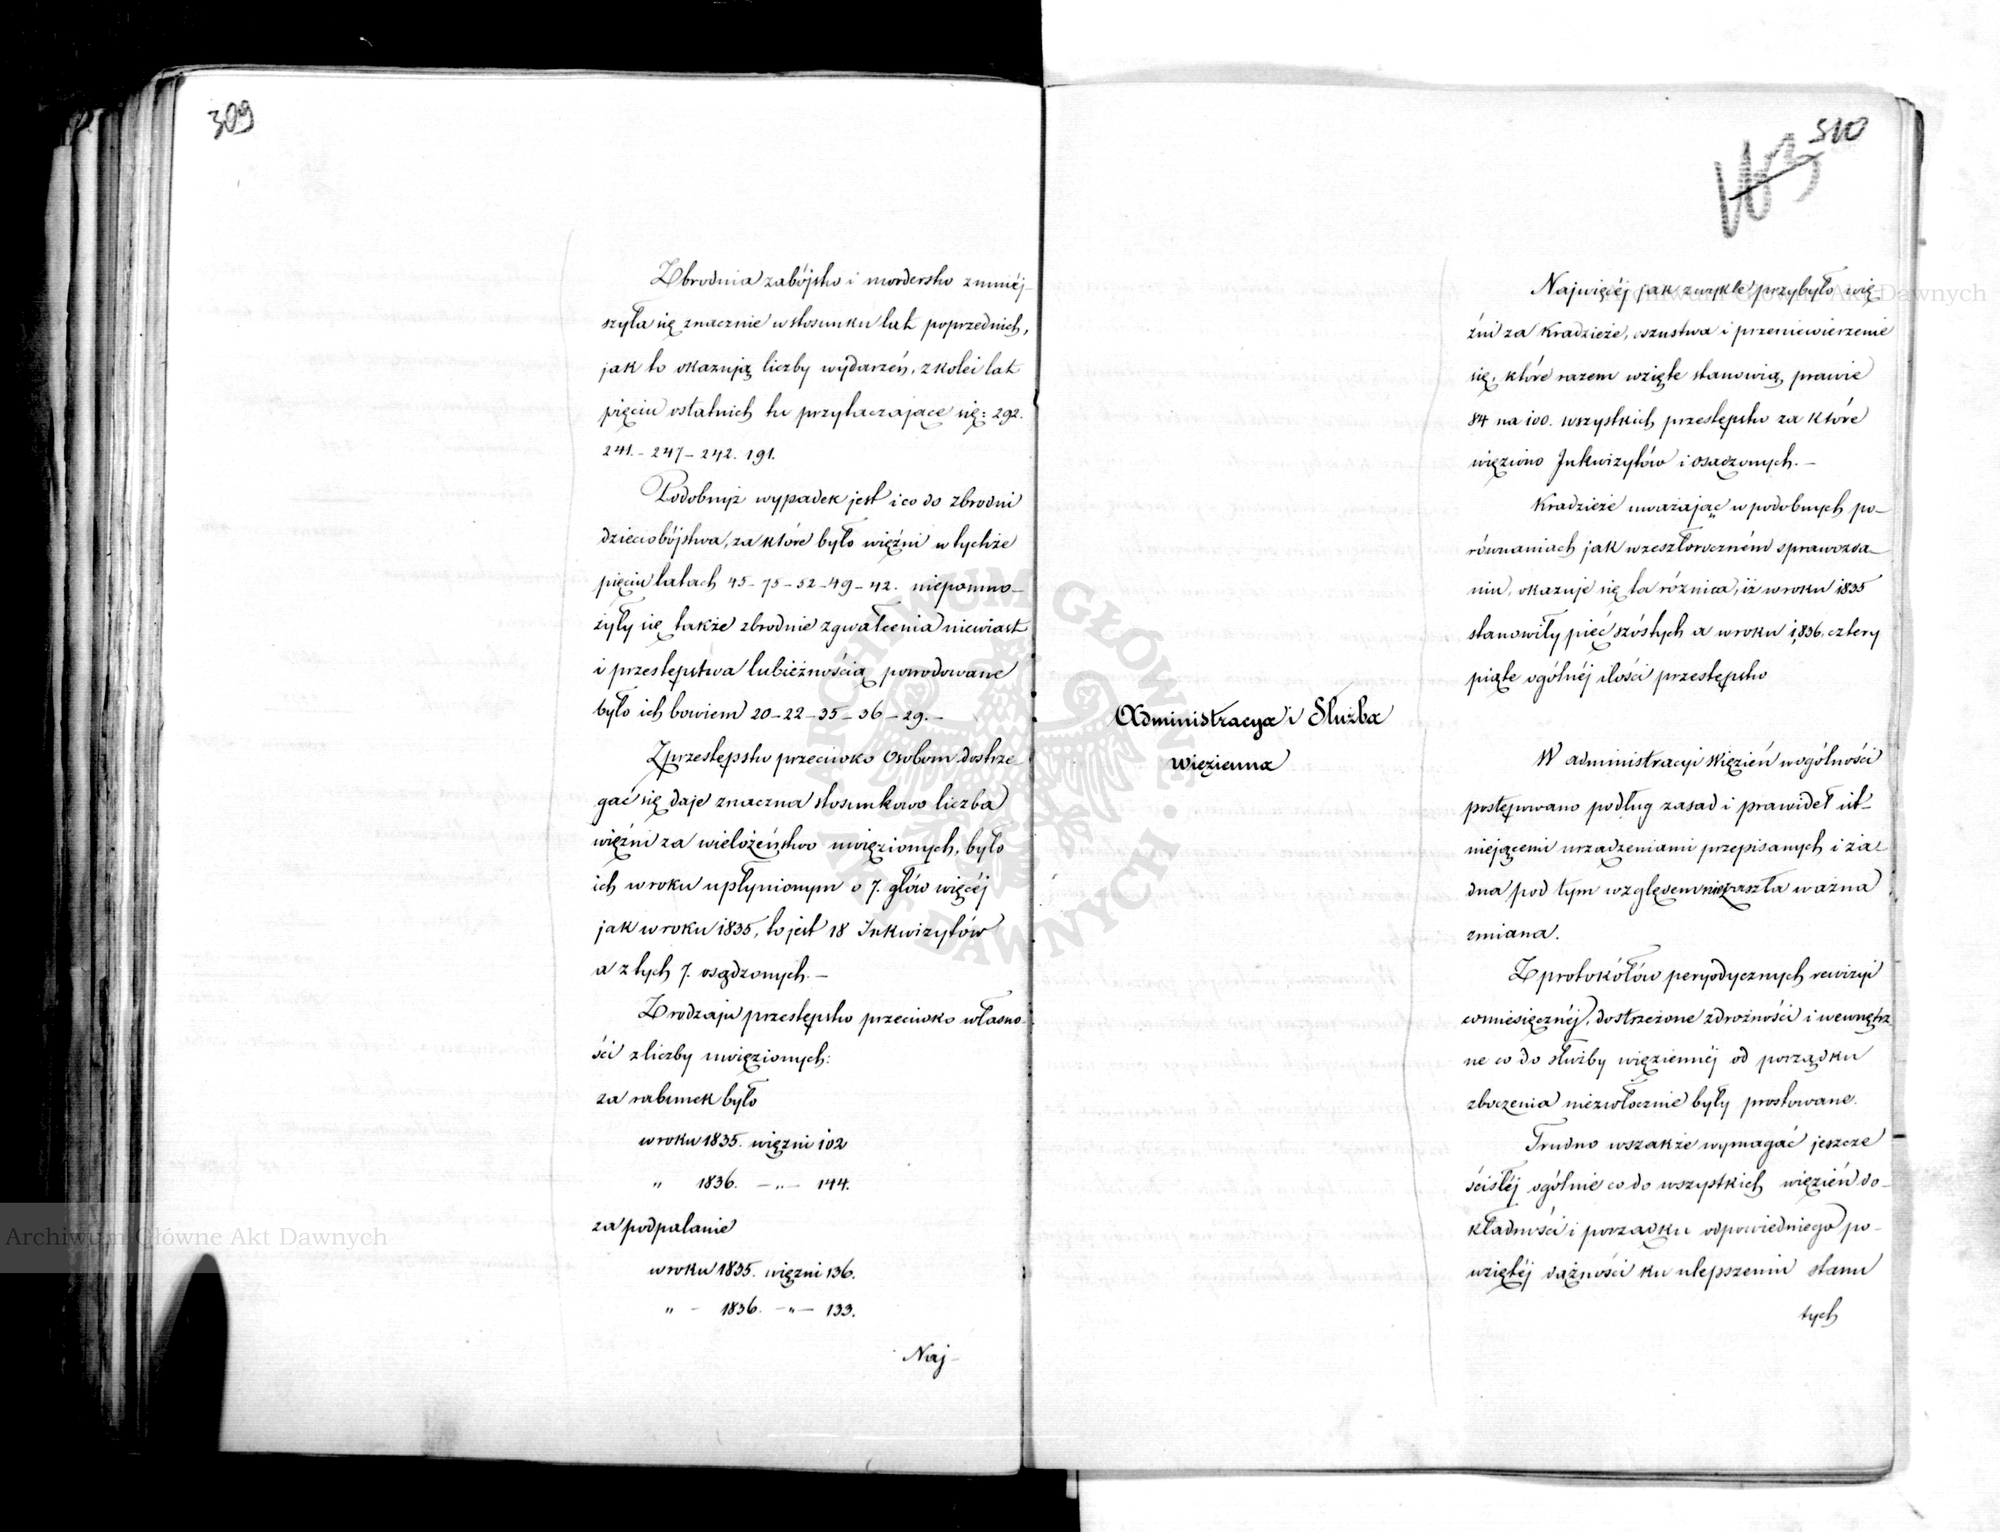 309
Zbrodnia zabójstw i morderstw zmniéj-
szyła się znacznie w stosunku lat poprzednich,
jak to okazują liczby wydarzeń, z kolei lat
pięciu ostatnich tu przytaczające się: 292.
241. – 247 – 242. 191.
Podobnyż wypadek jest i co do zbrodni
dzieciobójstwa, za które było więźni w tychże
pięciu latach 45 – 75 – 52 – 49 – 42. niepomno-
żyły się także zbrodnie zgwałcenia niewiast
i przestępstwa lubieżnością powodowane
było ich bowiem 20 – 22 – 35 – 36 – 29. –
Z przestępstw przeciwko Osobom dostrze-
gać się daje znaczna stosunkowo liczba
więźni za wielożeństwo uwięzionych, było
ich w roku upłynionym o 7. głów więcéj
jak w roku 1835, to jest 18 Inkwizytów
a z tych 7. osądzonych. –
Z rodzaju przestępstw przeciwko własno-
ści z liczby uwięzionych:
za rabunek było
w roku 1835. więzni 102
" 1836. – " – 144.
za podpalanie
w roku 1835. więzni 136.
" – 1836. – " – 133.
Naj-
310
Najwięcéj jak zwykle przybyło wię-
źni za Kradzieże, oszustwa i przeniewierzenie
się, które razem wzięte stanowią prawie
84 na 100. wszystkich przestępstw za które
więziono Inkwizytów i osądzonych. –
Kradzieże uważając w podobnych po-
równaniach jak w zeszłoroczném sprawozda-
niu, okazuje się ta różnica, iż w roku 1835
stanowiły pięć szóstych a w roku 1836, cztery
piąte ogólnéj ilości przestępstw
Administracya i Służba
więzienna
W administracyi Więzień w ogólności
postępowano podług zasad i prawideł ist-
niejącemi urządzeniami przepisanych i ża-
dna pod tym względem niezaszła ważna
zmiana.
Z protokółów peryodycznych rewizyi
comiesięcznéj, dostrzeżone zdrożności i wewnętrz-
ne co do służby więziennéj od porządku
zboczenia niezwłocznie były prostowane.
Trudno wszakże wymagać jeszcze
ściśléj ogólnie co do wszystkich więzień do-
kładności i porządku odpowiedniego po-
wziętéj dążności ku ulepszeniu stanu
tych
Archiwum Główne Akt Dawnych
Archiwum Główne Akt Dawnych
ARCHIWUM GŁÓWNE AKT DAWNYCH